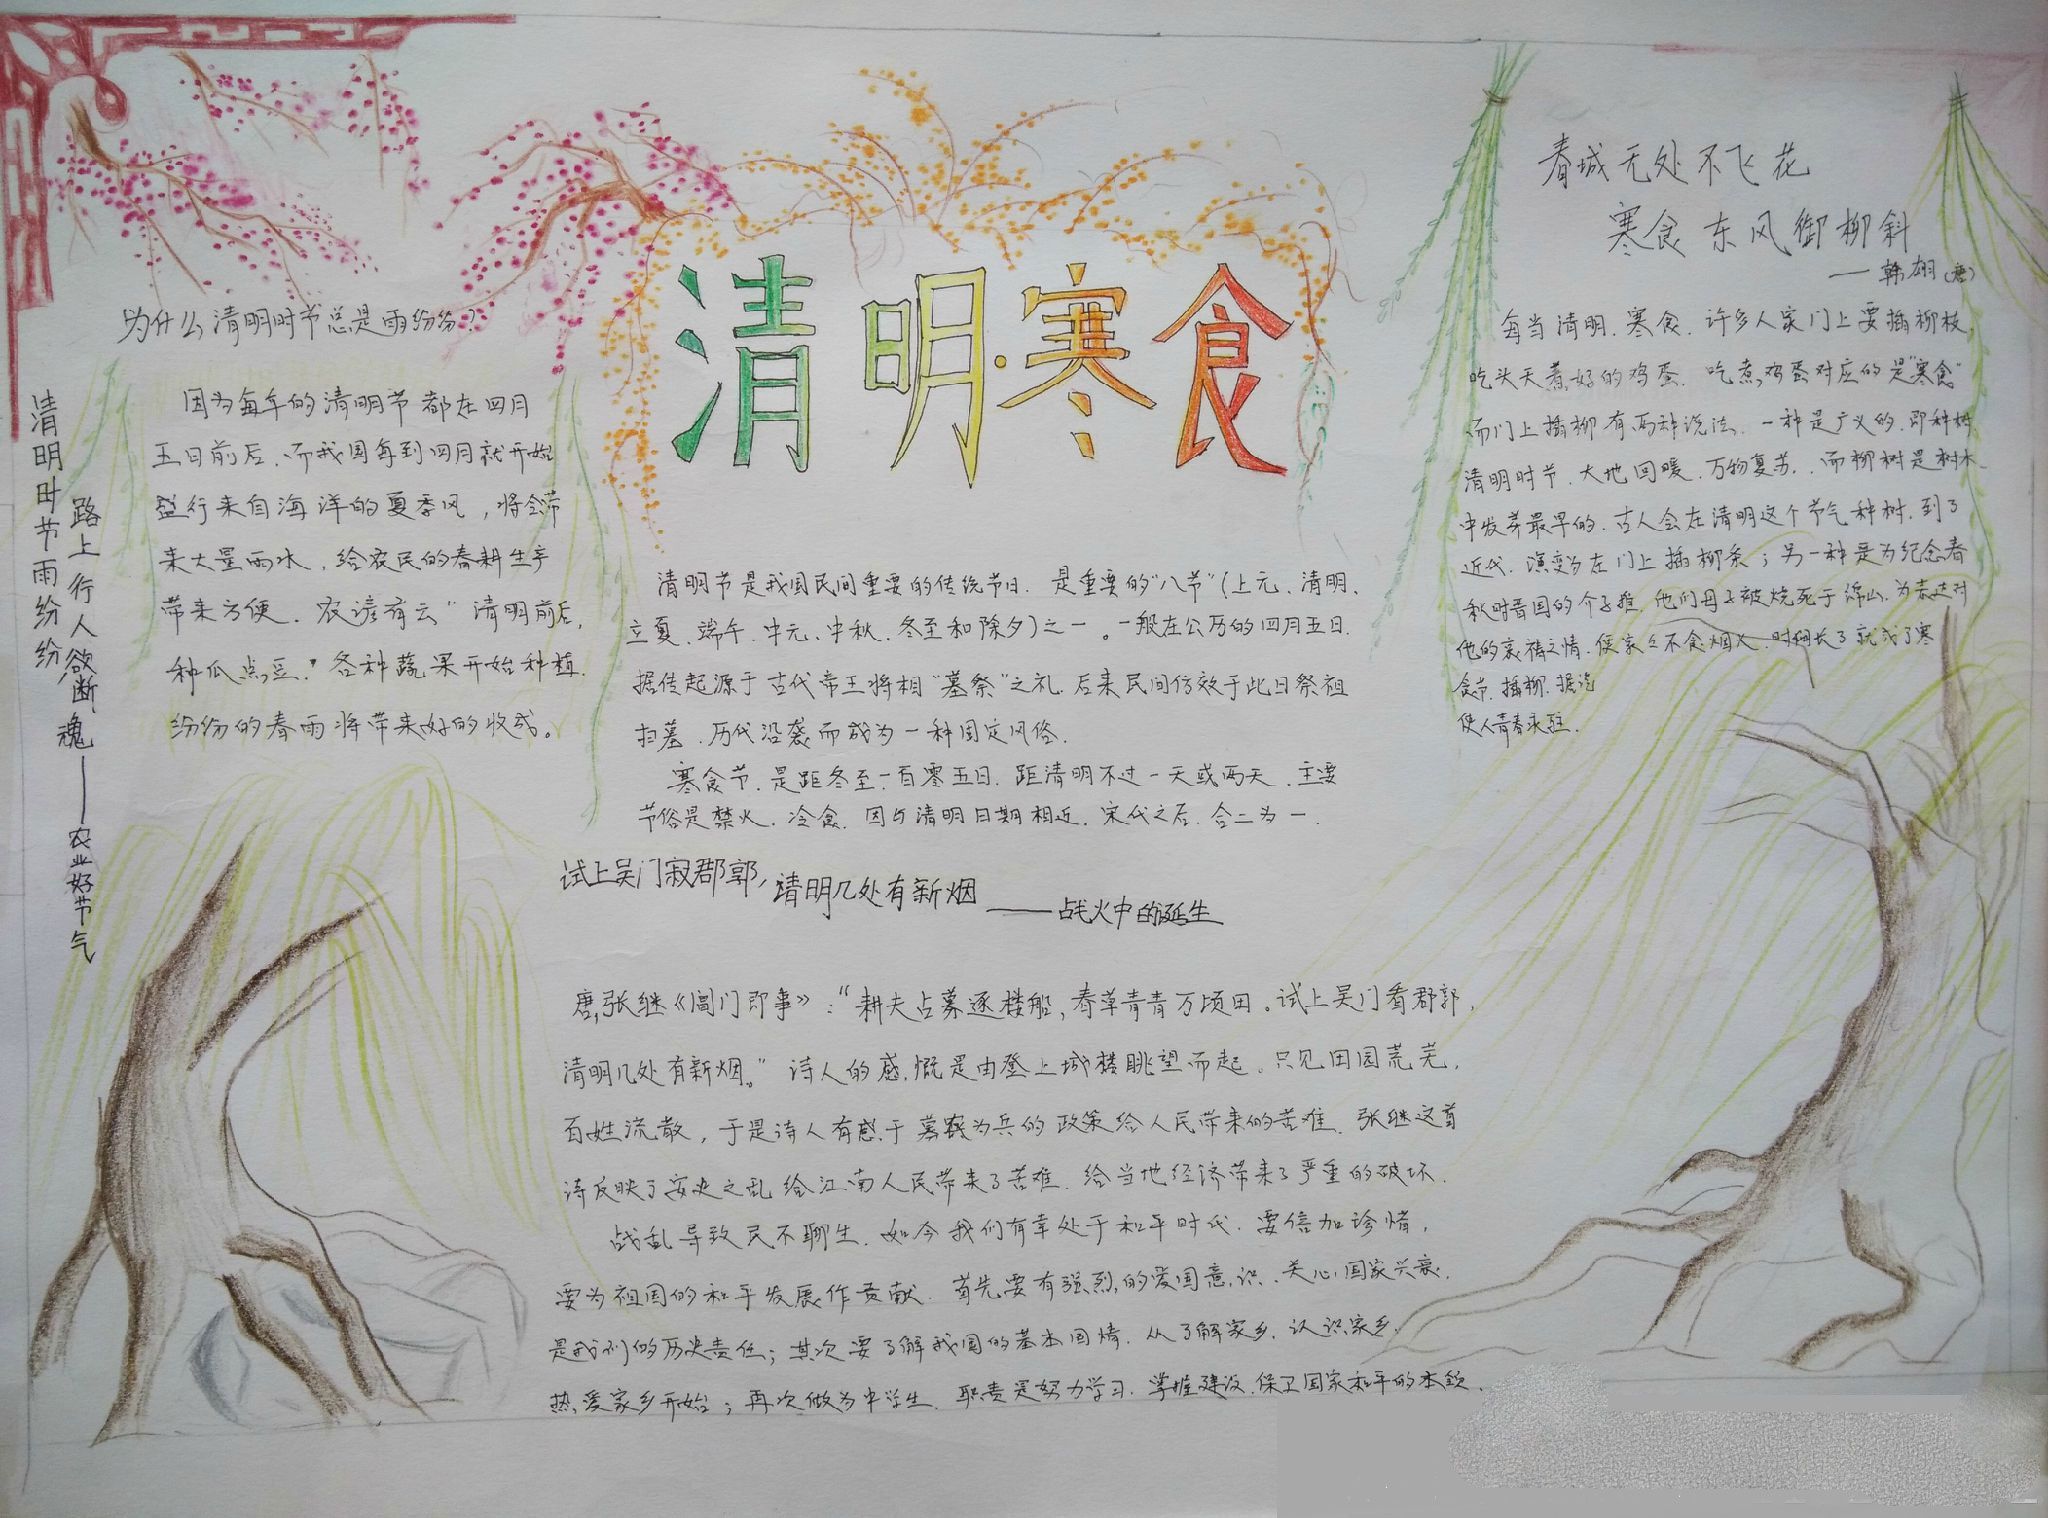 清明·寒食
清明时节雨纷纷
路上行人欲断魂——农业好节气
为什么清明时节总是雨纷纷？
因为每年的清明节都在四月
五日前后,而我国每到四月就开始
盛行来自海洋的夏季风,将会带
来大量雨水,给农民的春耕生产
带来方便.农谚有云"清明前后,
种瓜点豆."各种蔬果开始种植.
纷纷的春雨将带来好的收成。
清明节是我国民间重要的传统节日.是重要的"八节"(上元、清明、
立夏、端午、中元、中秋、冬至和除夕)之一。一般在公历的四月五日.
据传起源于古代帝王将相"墓祭"之礼.后来民间仿效于此日祭祖
扫墓.历代沿袭而成为一种固定风俗.
寒食节.是距冬至一百零五日.距清明不过一天或两天.主要
节俗是禁火.冷食.因与清明日期相近.宋代之后.合二为一.
春城无处不飞花
寒食东风御柳斜
——韩翃(唐)
每当清明.寒食.许多人家门上要插柳枝
吃头天煮好的鸡蛋.吃煮鸡蛋对应的是"寒食"
而门上插柳有两种说法.一种是广义的.即种树.
清明时节.大地回暖.万物复苏.而柳树是树木
中发芽最早的.古人会在清明这个节气种树.到了
近代.演变为在门上插柳条;另一种是为纪念春
秋时晋国的介子推.他们母子被烧死于绵山.为表达对
他的哀之情.家々不食烟火.时间长了就成了寒
食节.插柳.据说
使人青春永驻.
试上吴门寂郡郭,清明几处有新烟——战火中的诞生
唐,张继《阊门即事》:"耕夫占募逐楼船,春草青青万顷田。试上吴门看郡郭,
清明几处有新烟。"诗人的感慨是由登上城楼眺望而起。只见田园荒芜,
百姓流散,于是诗人有感于募农为兵的政策给人民带来的苦难.张继这首
诗反映了安史之乱给江南人民带来了苦难.给当地经济带来了严重的破坏.
战乱导致民不聊生.如今我们有幸处于和平时代.要倍加珍惜,
要为祖国的和平发展作贡献.首先要有强烈的爱国意识.关心国家兴衰.
是我们的历史责任;其次要了解我国的基本国情.从了解家乡.认识家乡.
热爱家乡开始;再次做为中学生.职责是努力学习.掌握建设.保卫国家和平的本领.